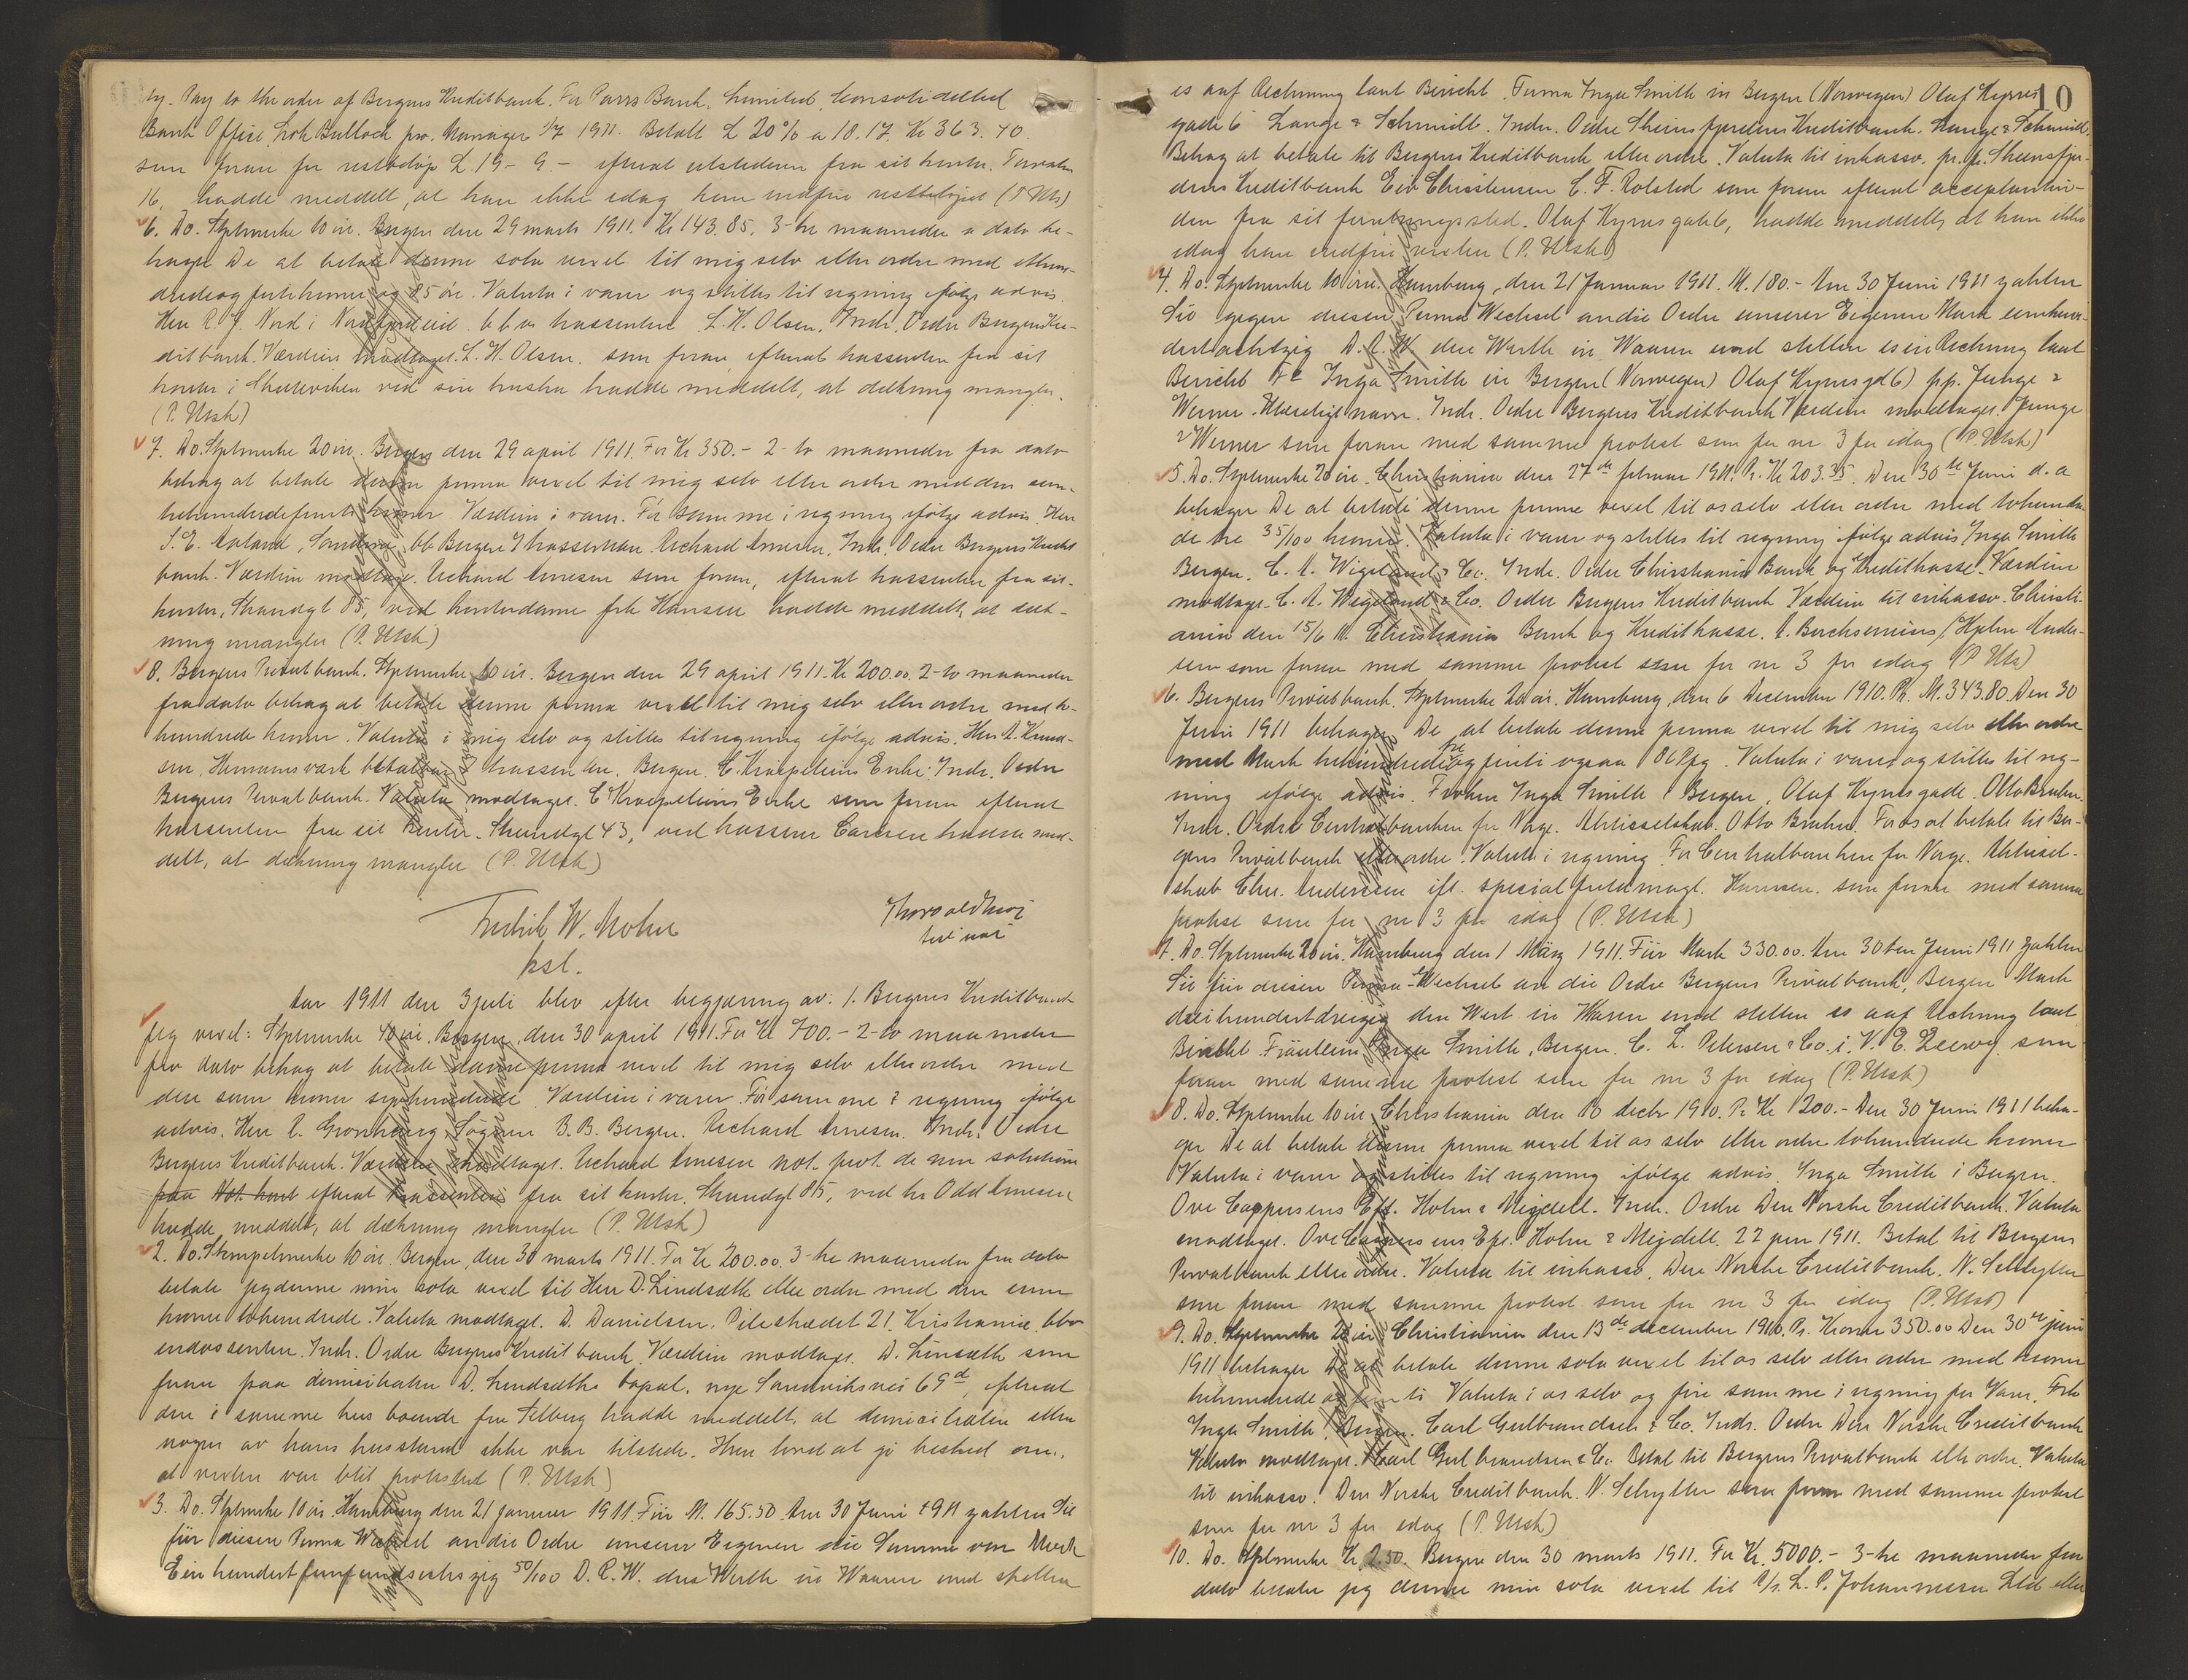 ty. Pay to the order of Bergens Kreditbank. For Parrs Bank, Limited,
Bank Office Bullock pro. Manager 1/7 1911. Betalt £ 20% a 18.17. Kr 363.40.
som foran for restbeløp £ 19-9- efterat utstederen fra sit kontor, Torvalm
16, hadde meddelt, at han ikke idag kan indfri restbeløpet (P. Utsk)
6. Do. Stpelmerke 10 øre. Bergen den 29 marts 1911. Kr 143.85. 3-tre maaneder a dato be-
hager De at betale denne sola vexel til mig selv eller ordre med ethun-
drede og firtitre kroner og 85 øre. Valuta i varer og stilles til regning ifølge advis.
Herr R. J. Nord i Nordfjordeid. b b os trassenten L. H. Olsen. Indr. Ordre Bergens Kre-
ditbank. Værdien modtaget. L. H. Olsen. som foran, efterat trassenten fra sit
kontor i Skuteviken ved sin hustru hadde meddelt, at dækning mangler.
(P. Utsk)
7. Do. Stpelmerke 20 øre. Bergen den 29 april 1911. For Kr 350.- 2-to maaneder fra dato
behag at betale denne prima vexel til mig selv eller ordre med den sum
trehundredefemti kroner. Værdien i varer. Før samme i regning ifølge advis. Herr
S. E. Aaland, Sandene, bb Bergen Trassenten. Richard Arnesen, Indr. Ordre Bergens Kredit
bank. Værdien modtaget. Richard Arnesen som foran, efterat trassenten fra sit
kontor, Strandgt 85, ved kontordame frk Hansen hadde meddelt, at dæk-
ning mangler (P. Utsk)
8. Bergens Privatbank. Stpelmerke 10 øre. Bergen den 29 april 1911. Kr 200.00. 2-to maaneder
fra dato behag at betale denne prima vexel til mig selv eller ordre med to-
hundrede kroner. Valuta i mig selv og stilles til regning ifølge advis. Herr A. Knud-
sen, Hermansverk betalbar Trassenten. Bergen. C. Kraepeliens Enke. Indr. Ordre
Bergens Privatbank. Valuta modtaget. C Kraepeliens Enke som foran efterat
trassenten fra sit kontor. Strandgt 43, ved kasserer Carlsen hadde med-
delt, at dækning mangler (P. Utsk)
Fredrik W. Mohn
kst.
Aar 1911 den 3 juli blev efter begjæring av: 1. Bergens Kreditbank
flg vexel: Stpelmerke 40 øre. Bergen, den 30 april 1911. For Kr 700.- 2-to maaneder
fra dato behag at betale denne prima vexel til mig selv eller ordre med
den sum kroner syvhundrede. Værdien i varer. Før samme i regning ifølge
advis. Herr R. Gronhaug, Søgnen B. B. Bergen. Richard Arnesen. Indr. Ordre
Bergens Kreditbank. Værdien modtaget. Richard Arnesen not. prot. de non solutione
paa Not. kont efterat trassenten fra sit kontor, Strandgt 85, ved hr Odd Arnesen
hadde meddelt, at dækning mangler (P. Utsk)
2. Do. Stempelmerke 10 øre. Bergen, den 30 marts 1911. For Kr 200.00. 3-tre maaneder fra dato
betaler jeg denne min sola vexel til Herr D. Lindsæth eller ordre med den sum
kroner tohundrede. Valuta modtaget. D. Danielsen. Pilestrædet 21. Kristiania. bbos
endossenten. Indr. Ordre Bergens Kreditbank. Værdien modtaget. D. Linsæth som
foran paa domicilhaver D. Lindsæths bopæl, nye Sandviksvei 69d, efterat
den i samme hus boende fru Selberg hadde meddelt, at domicilhaver eller
nogen av hans husstand ikke var tilstede. Hun lovet at gi besked om,
at vexlen var blit protestert (P. Utsk)
3. Do. Stpelmerke 10 øre. Hamburg den 21 januar 1911. Für M. 165.50. Am 30 Juni 1911 zahlen Sie
für diesen Prima Wechsel an die Ordre unserer Eigenen die Summe von Mark
Ein hundert fünfundsechszig 50/100 D. R. W. den Werth in Waaren und stellen
10
es auf Rechnung laut Bericht. Firma Inga Smith in Bergen (Norwegen) Olaf Kyrres
gade 6 Lange & Schmidt. Indr. Ordre Steensfjordens Kreditbank. Lange & Schmidt.
Behag at betale til Bergens Kreditbank eller ordre. Valuta til inkasso. pr. pr. Steensfjor-
dens Kreditbank Eiv Christensen C. F. Rolsted som foran efterat acceptantin-
den fra sit forretningssted. Olaf Kyrres gate 6, hadde meddelt, at hun ikke
idag kan indfri vexlen (P. Utsk)
4. Do. Stpelmerke 10 øre. Hamburg, den 21 Januar 1911. M. 180.- Am 30 Juni 1911 zahlen
Sie gegen diesen Prima Wechsel an die Ordre unserer Eigenen Mark einhun-
dertachtzig D. R. W den Werth in Waaren und stellen es in Rechnung laut
Bericht Fr Inga Smith in Bergen (Norwegen) Olaf Kyrresgd 6) pp. Junge &
Werner. Ulæseligt navn. Indr. Ordre Bergens Kreditbank Værdien modtaget. Junge
& Werner som foran med samme protest som for nr 3 for idag (P. Utsk)
5. Do. Stpelmerke 20 øre. Christiania den 27de februar 1911. Pr. Kr 203.35. Den 30te Juni d. a
behager De at betale denne prima vexel til os selv eller ordre med tohundre-
de tre 35/100 kroner. Valuta i varer og stilles til regning ifølge advis Inga Smith
Bergen. C. A. Wigeland & Co. Indr. Ordre Christiania Bank og Kreditkasse. Værdien
modtaget. C. A. Wigeland & Co. Ordre Bergens Kreditbank Værdien til inkasso. Christi-
ania den 15/6 11. Christiania Bank og Kreditkasse. A. Borchsenius / Hjalm Ander-
sen som foran med samme protest som for nr 3 for idag (P. Utsk)
6. Bergens Privatbank. Stpelmerke 20 øre. Hamburg, den 6 December 1910. Pr. M. 343.80. Den 30
Juni 1911 behager De at betale denne prima vexel til mig selv eller ordre
med Mark trehundrede tre og firti ogsaa 80 Pfg. Valuta i varer og stilles til reg-
ning ifølge advis. Frøken Inga Smith i Bergen, Olaf Kyrresgade. Otto Bruhn.
Indr. Ordre Centralbanken for Norge. Aktieselskab. Otto Bruhn. For os at betale til Ber-
gens Privatbank eller ordre. Valuta i regning. For Centralbanken for Norge. Aktiesel-
skab Chr. Anderssen ifl. specialfuldmagt. Hanssen. som foran med samme
protest som for nr 3 for idag (P. Utsk)
7. Do. Stpelmerke 20 øre. Hamburg den 1 März 1911. Für Mark 330.00. Am 30ten Juni 1911 zahlen
Sie für diesen Prima-Wechsel an die Ordre Bergens Privatbank, Bergen Mark
dreihundertdreizig den Wert in Waren und stellen es auf Rechnung laut
Bericht. Fräulein Inga Smith, Bergen. C. L. Petersen & Co. i. V. E. Leewog. som
foran med samme protest som for nr 3 for idag (P. Utsk)
8. Do. Stpelmerke 10 øre. Christiania den 10 decbr 1910. Pr Kr 1200.- Den 30 Juni 1911 beha-
ger De at betale denne prima vexel til os selv eller ordre tohundrede kroner
Valuta i varer og stilles til regning ifølge advis. Inga Smith i Bergen.
Ove Caspersens Eft. Holm & Mejdell. Indr. Ordre Den Norske Creditbank. Valuta
modtaget. Ove Caspersens Eft. Holm & Mejdell. 22 jun 1911. Betal til Bergens
Privatbank eller ordre. Valuta til inkasso. Den Norske Creditbank. N. Schytter
som foran med samme protest som for nr 3 for idag (P. Utsk)
9. Do. Stpelmerke 20 øre Christiania den 13de december 1910. Pr. Kroner 350.00 Den 30te juni
1911 behager De at betale denne sola vexel til os selv eller ordre med kroner
trehundrede og femti Valuta i os selv og føre samme i regning for Varer. Frk
Inga Smith, Bergen. Carl Gulbrandsen & Co. Indr. Ordre Den Norske Creditbank
Valuta modtaget. Carl Gulbrandsen & Co. Betal til Bergens Privatbank eller ordre. Valuta
til inkasso. Den Norske Creditbank. N. Schytter som foran med samme protest
som for nr 3 for idag (P. Utsk)
10. Do. Stpelmerke Kr 2.50. Bergen den 30 marts 1911. For Kr. 5000.- 3-tre maaneder fra
dato betaler jeg denne min sola vexel til A/s. L. P. Johannesen Ltd eller